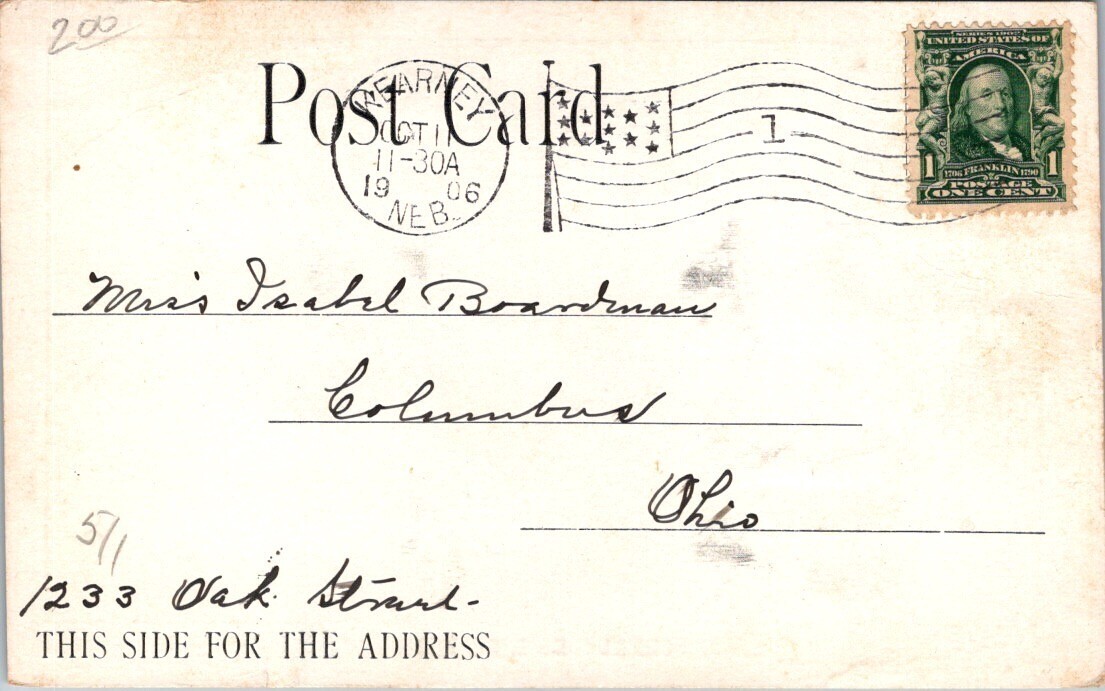 200
Post Card
KEARNEY
OCT 11
11-30A
1906
NEB.
1
SERIES 1902
UNITED STATES OF
AMERICA
1 1
1706 FRANKLIN 1790
POSTAGE
ONE CENT
Miss Isabel Boardman
Columbus
Ohio
5/1
1233 Oak Street-
THIS SIDE FOR THE ADDRESS